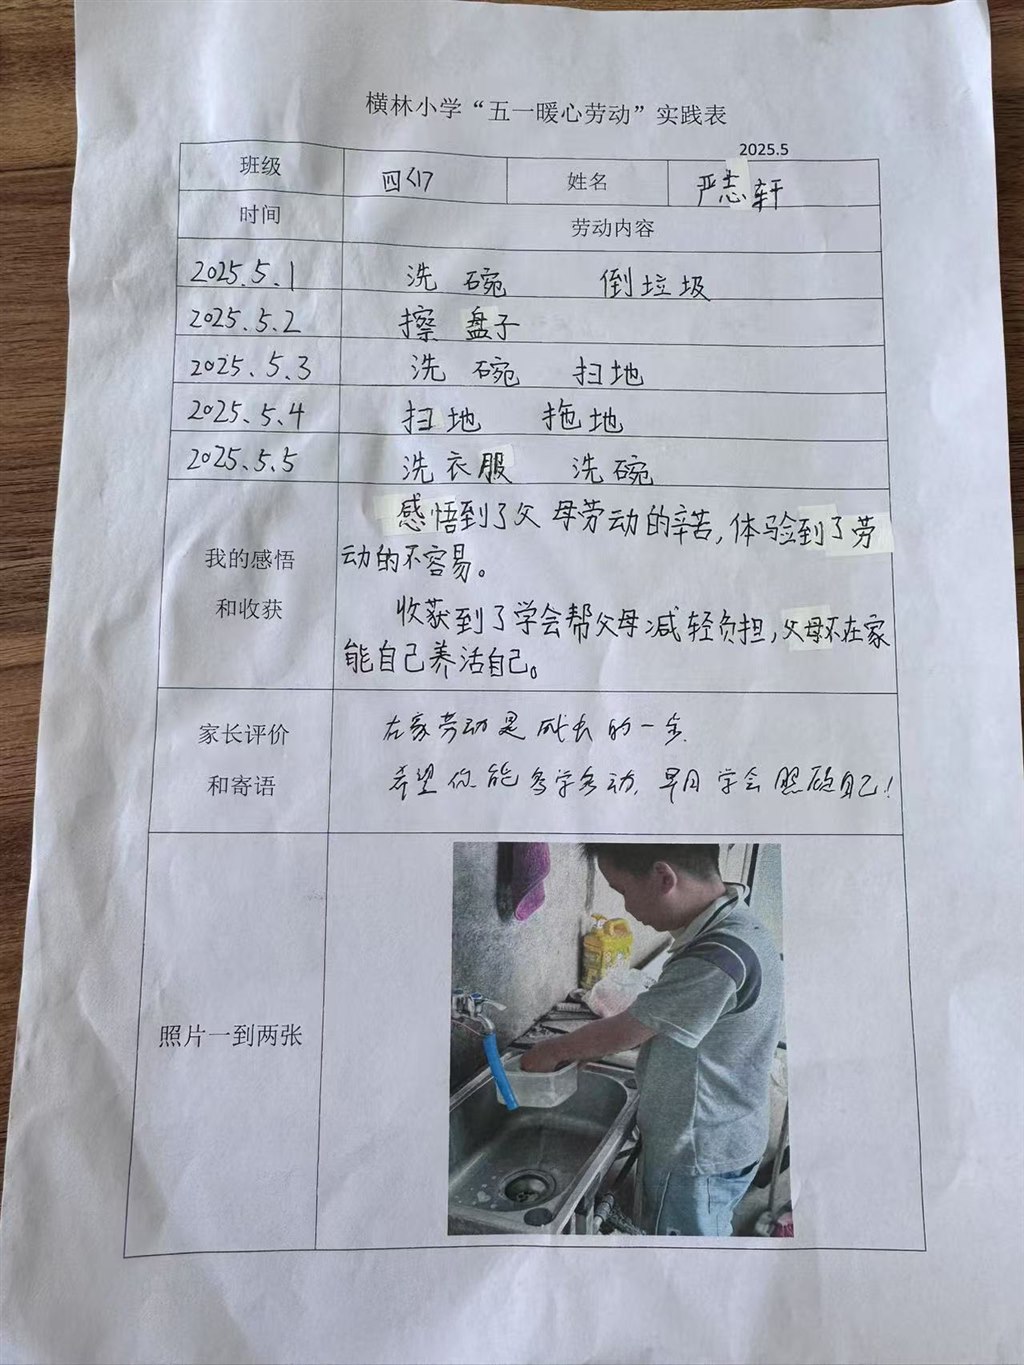 横林小学“五一暖心劳动”实践表
2025.5
班级 四 姓名 严志轩
时间 劳动内容
2025.5.1 洗碗 倒垃圾
2025.5.2 擦盘子
2025.5.3 洗碗 扫地
2025.5.4 扫地 拖地
2025.5.5 洗衣服 洗碗
我的感悟
和收获
感悟到了父母劳动的辛苦,体验到了劳
动的不容易。
收获到了学会帮父母减轻负担,父母不在家
能自己养活自己。
家长评价
和寄语
在家劳动是成长的一步
希望你能多学多动,早日学会照顾自己!
照片一到两张